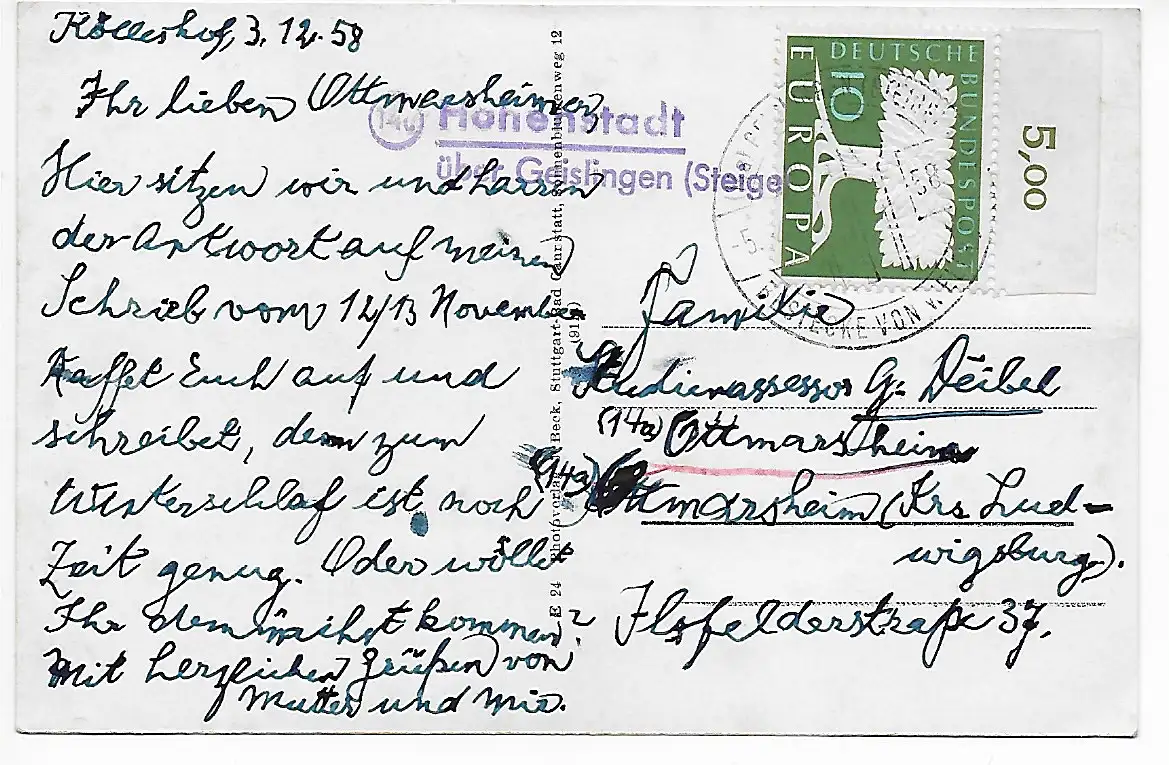 Kölleshof, 3. 12. 58
Ihr lieben Ottmarsheimer,
Hier sitzen wir und harren
der Antwort auf meinen
Schrieb vom 12/13 November
Raffet Euch auf und
schreibet, denn zum
Winterschlaf ist noch
Zeit genug. Oder wollet
Ihr demnächst kommen?
Mit herzlichen Grüßen von
Mutter und mir.
(14a) Hohenstadt
über Geislingen (Steige)
E 24 Photoverlag Beck, Stuttgart-Bad Cannstatt, 12
DEUTSCHE
BUNDESPOST
EUROPA
10
5,00
Familie
Studienassessor G. Deibel
(14a) Ottmarsheim
(14a) Ottmarsheim (Krs Lud=
wigsburg).
Ilsfelderstraße 37.